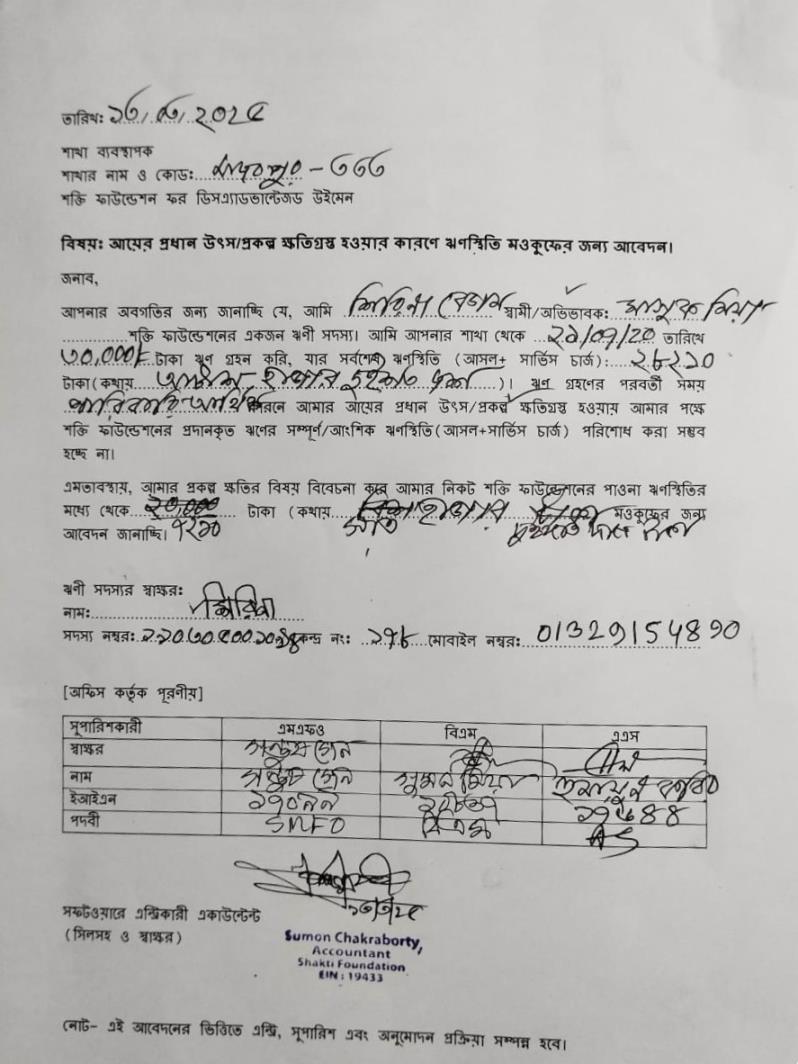 তারিখ:
শাখা ব্যবস্থাপক
শাখার নাম ও কোড: - ৩৬৬
শক্তি ফাউন্ডেশন ফর ডিসএ্যাডভান্টেজড উইমেন
বিষয়ঃ আয়ের প্রধান উৎস/প্রকল্প ক্ষতিগ্রস্ত হওয়ার কারণে ঋণস্থিতি মওকুফের জন্য আবেদন।
জনাব,
আপনার অবগতির জন্য জানাচ্ছি যে, আমি শিরিনা বেগম স্বামী/অভিভাবক: মাসুক মিয়া
শক্তি ফাউন্ডেশনের একজন ঋণী সদস্য। আমি আপনার শাখা থেকে তারিখে
৩০,০০০/- টাকা ঋণ গ্রহন করি, যার সর্বশেষ ঋণস্থিতি (আসল+ সার্ভিস চার্জ): ২৮২১০
টাকা(কথায় আটাশ হাজার দুইশত দশ )। ঋণ গ্রহণের পরবর্তী সময়
পারিবারিক আর্থিক কারনে আমার আয়ের প্রধান উৎস/প্রকল্প ক্ষতিগ্রস্ত হওয়ায় আমার পক্ষে
শক্তি ফাউন্ডেশনের প্রদানকৃত ঋণের সম্পূর্ণ/আংশিক ঋণস্থিতি(আসল+সার্ভিস চার্জ) পরিশোধ করা সম্ভব
হচ্ছে না।
এমতাবস্থায়, আমার প্রকল্প ক্ষতির বিষয় বিবেচনা করে আমার নিকট শক্তি ফাউন্ডেশনের পাওনা ঋণস্থিতির
মধ্যে থেকে টাকা (কথায় মওকুফের জন্য
আবেদন জানাচ্ছি। ৭২১০ সাত
ঋণী সদস্যর স্বাক্ষরঃ
নাম: শিরিনা
সদস্য নম্বরঃ কেন্দ্র নং: ২৭৮ মোবাইল নম্বরঃ 01329154890
[অফিস কর্তৃক পূরনীয়]
সুপারিশকারী এমএফও বিএম এএস
স্বাক্ষর
নাম সুমন মিয়া হুমায়ুন কবির
ইআইএন ১৭০৯৯
পদবী SMFO বিএম AS
সফটওয়ারে এন্ট্রিকারী একাউন্টেন্ট
(সিলসহ ও স্বাক্ষর)
Sumon Chakraborty,
Accountant
Shakti Foundation
EIN : 19433
নোট- এই আবেদনের ভিত্তিতে এন্ট্রি, সুপারিশ এবং অনুমোদন প্রক্রিয়া সম্পন্ন হবে।